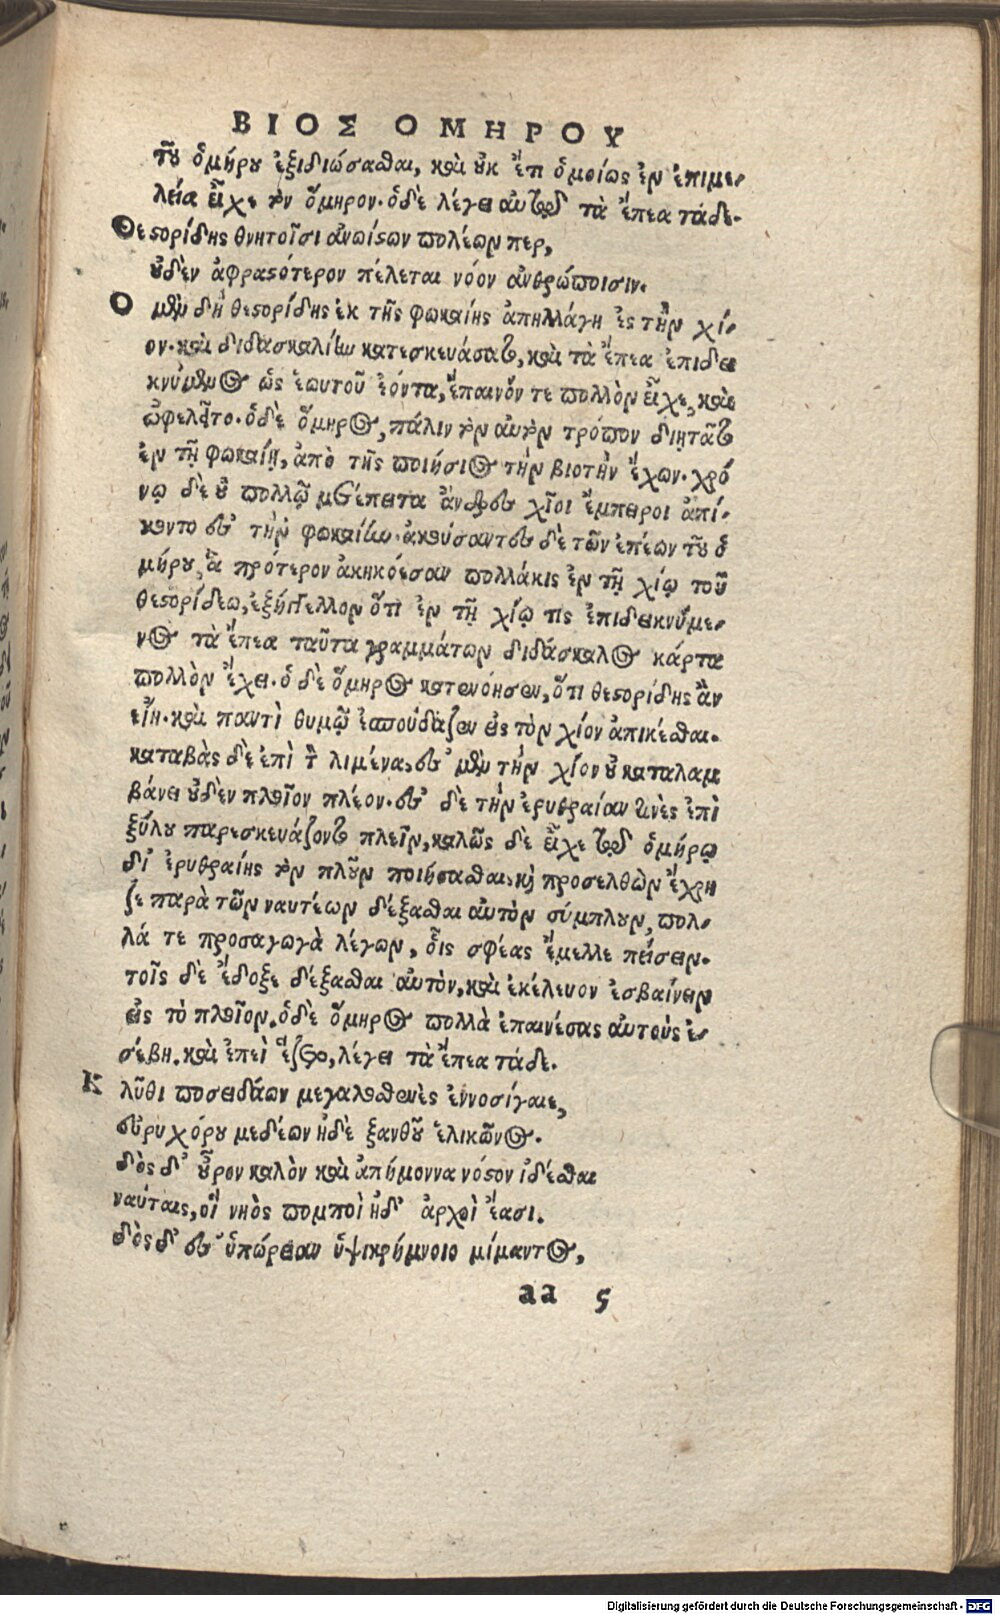 ΒΙΟΣ ΟΜΗΡΟΥ
τοῦ ὁμήρου ἐξιδιώσασθαι, καὶ οὐκ ἔτι ὁμοίως ἐν ἐπιμε-
λείᾳ εἶχε τὸν ὅμηρον. ὁ δὲ λέγει αὐτῷ τὰ ἔπεα τάδε.
Θεστορίδης θνητοῖσι ἀνωίστων πολέων περ,
οὐδὲν ἀφραστότερον πέλεται νόου ἀνθρώποισιν.
Ο μὲν δὴ θεστορίδης ἐκ τῆς φωκαίης ἀπηλλάγη ἐς τὴν χί-
ον. καὶ διδασκαλίην κατεσκευάσατο, καὶ τὰ ἔπεα ἐπιδει
κνύμενος ὡς ἑωυτοῦ ἐόντα, ἔπαινόν τε πολλὸν εἶχε, καὶ
ὠφελεῖτο. ὁ δὲ ὅμηρος, πάλιν τὸν αὐτὸν τρόπον διῃτᾶτο
ἐν τῇ φωκαίῃ, ἀπὸ τῆς ποιήσιος τὴν βιοτὴν ἔχων. χρό
νῳ δὲ οὐ πολλῷ μετέπειτα ἄνδρες χῖοι ἔμπεροι ἀπί-
κοντο ἐς τὴν φωκαίην. ἀκούσαντες δὲ τῶν ἐπέων τοῦ ὁ
μήρου, ἃ πρότερον ἀκηκόεσαν πολλάκις ἐν τῇ χίῳ τοῦ
θεστορίδεω, ἐξήγγελλον ὅτι ἐν τῇ χίῳ τις ἐπιδεικνύμε-
νος τὰ ἔπεα ταῦτα γραμμάτων διδάσκαλος κάρτα
πολλὸν ἔχει. ὁ δὲ ὅμηρος κατενόησεν, ὅτι θεστορίδης ἂν
εἴη. καὶ παντὶ θυμῷ ἐσπούδαζεν εἰς τὸν χίον ἀπικέσθαι.
καταβὰς δὲ ἐπὶ τὸν λιμένα, ἐς μὲν τὴν χίον οὐ καταλαμ
βάνει οὐδὲν πλεῖον πλέον. ἐς δὲ τὴν ἐρυθραίαν τινὲς ἐπὶ
ξύλου παρεσκευάζοντο πλεῖν, καλῶς δὲ εἶχε τῷ ὁμήρῳ
δι' ἐρυθραίης τὸν πλοῦν ποιήσασθαι. καὶ προσελθὼν ἔχρη
ζε παρὰ τῶν ναυτέων δέξασθαι αὐτὸν σύμπλουν, πολ-
λά τε προσαγωγὰ λέγων, οἷς σφέας ἔμελλε πείσειν.
τοῖς δὲ ἔδοξε δέξασθαι αὐτὸν, καὶ ἐκέλευον ἐσβαίνειν
εἰς τὸ πλοῖον. ὁ δὲ ὅμηρος πολλὰ ἐπαινέσας αὐτοὺς ἐ-
σέβη. καὶ ἐπεὶ ἕζετο, λέγει τὰ ἔπεα τάδε.
Κ λῦθι ποσειδάων μεγαλοσθενὲς ἐννοσίγαιε,
εὐρυχόρου μεδέων ἠδὲ ξανθοῦ ἑλικῶνος.
δὸς δ' οὖρον καλὸν καὶ ἀπήμονα νόστον ἰδέσθαι
ναύταις, οἳ νηὸς πομποὶ ἠδ' ἀρχοὶ ἔασι.
δὸς δ' ἐς ὑπώρειαν ὑψικρήμνοιο μίμαντος,
aa 5
Digitalisierung gefördert durch die Deutsche Forschungsgemeinschaft - DFG